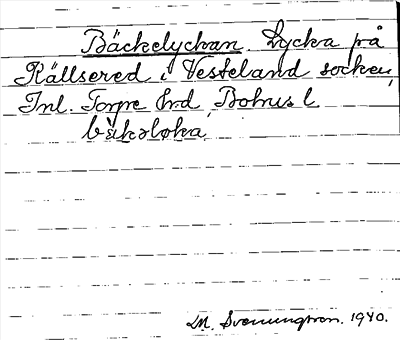 Bäckelyckan. Lycka på
Källsered i Vesteland socken,
Inl. Torpe hrd, Bohus l
bäkəloka
M. Svenungson. 1940.